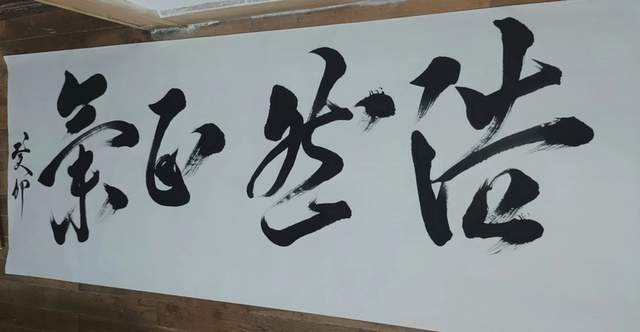 浩然正氣
癸卯